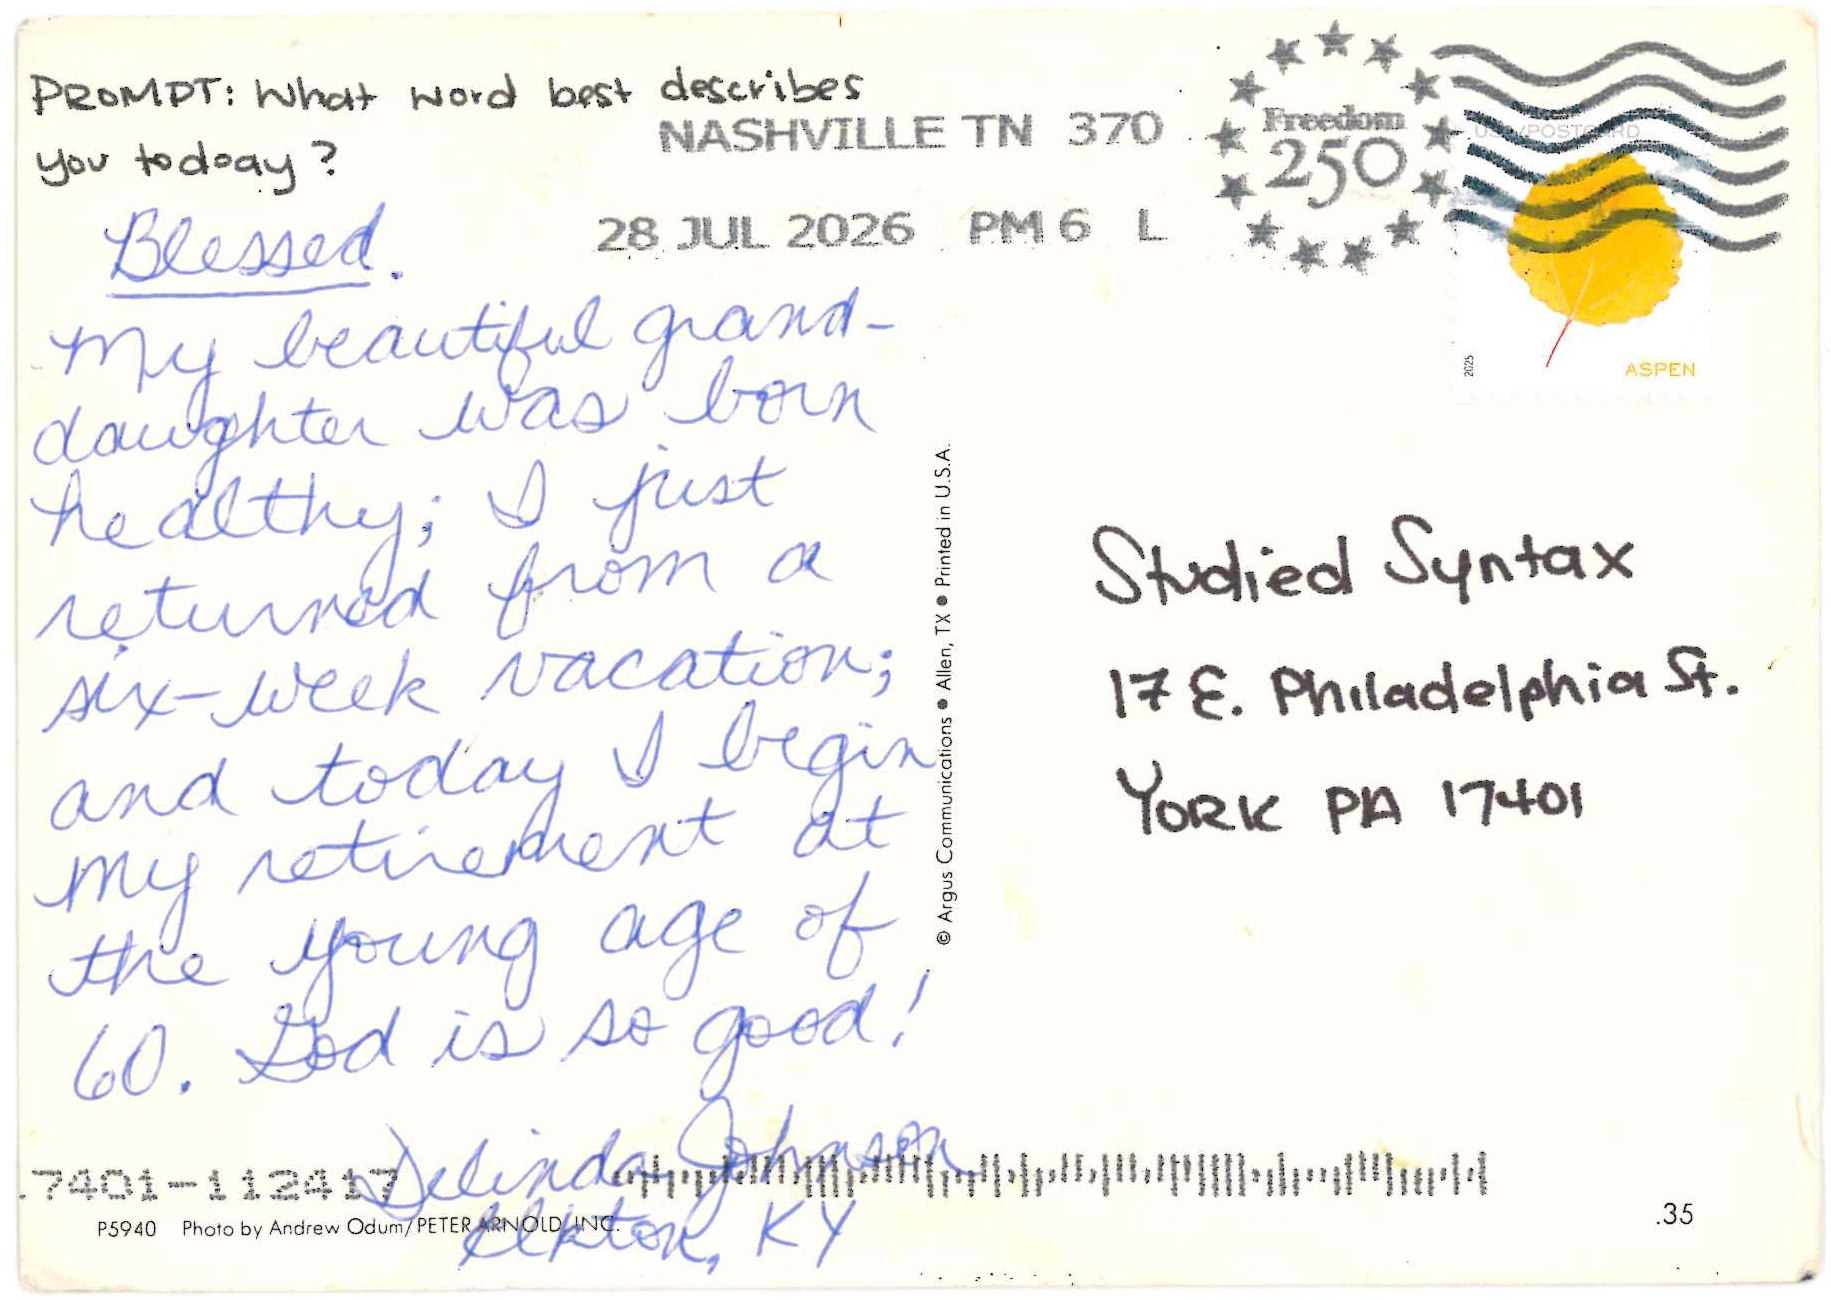 PROMPT: What word best describes
you todoay?
NASHVILLE TN 370
28 JUL 2026 PM 6 L
Freedom
250
USA/POSTCARD
2025
ASPEN
Blessed.
My beautiful grand-
daughter was born
healthy; I just
returned from a
six-week vacation;
and today I begin
my retirement at
the young age of
60. God is so good!
Delinda Johnson
Elkton, KY
© Argus Communications • Allen, TX • Printed in U.S.A.
Studied Syntax
17 E. Philadelphia St.
YORK PA 17401
7401-112417
P5940 Photo by Andrew Odum/PETER ARNOLD, INC.
.35